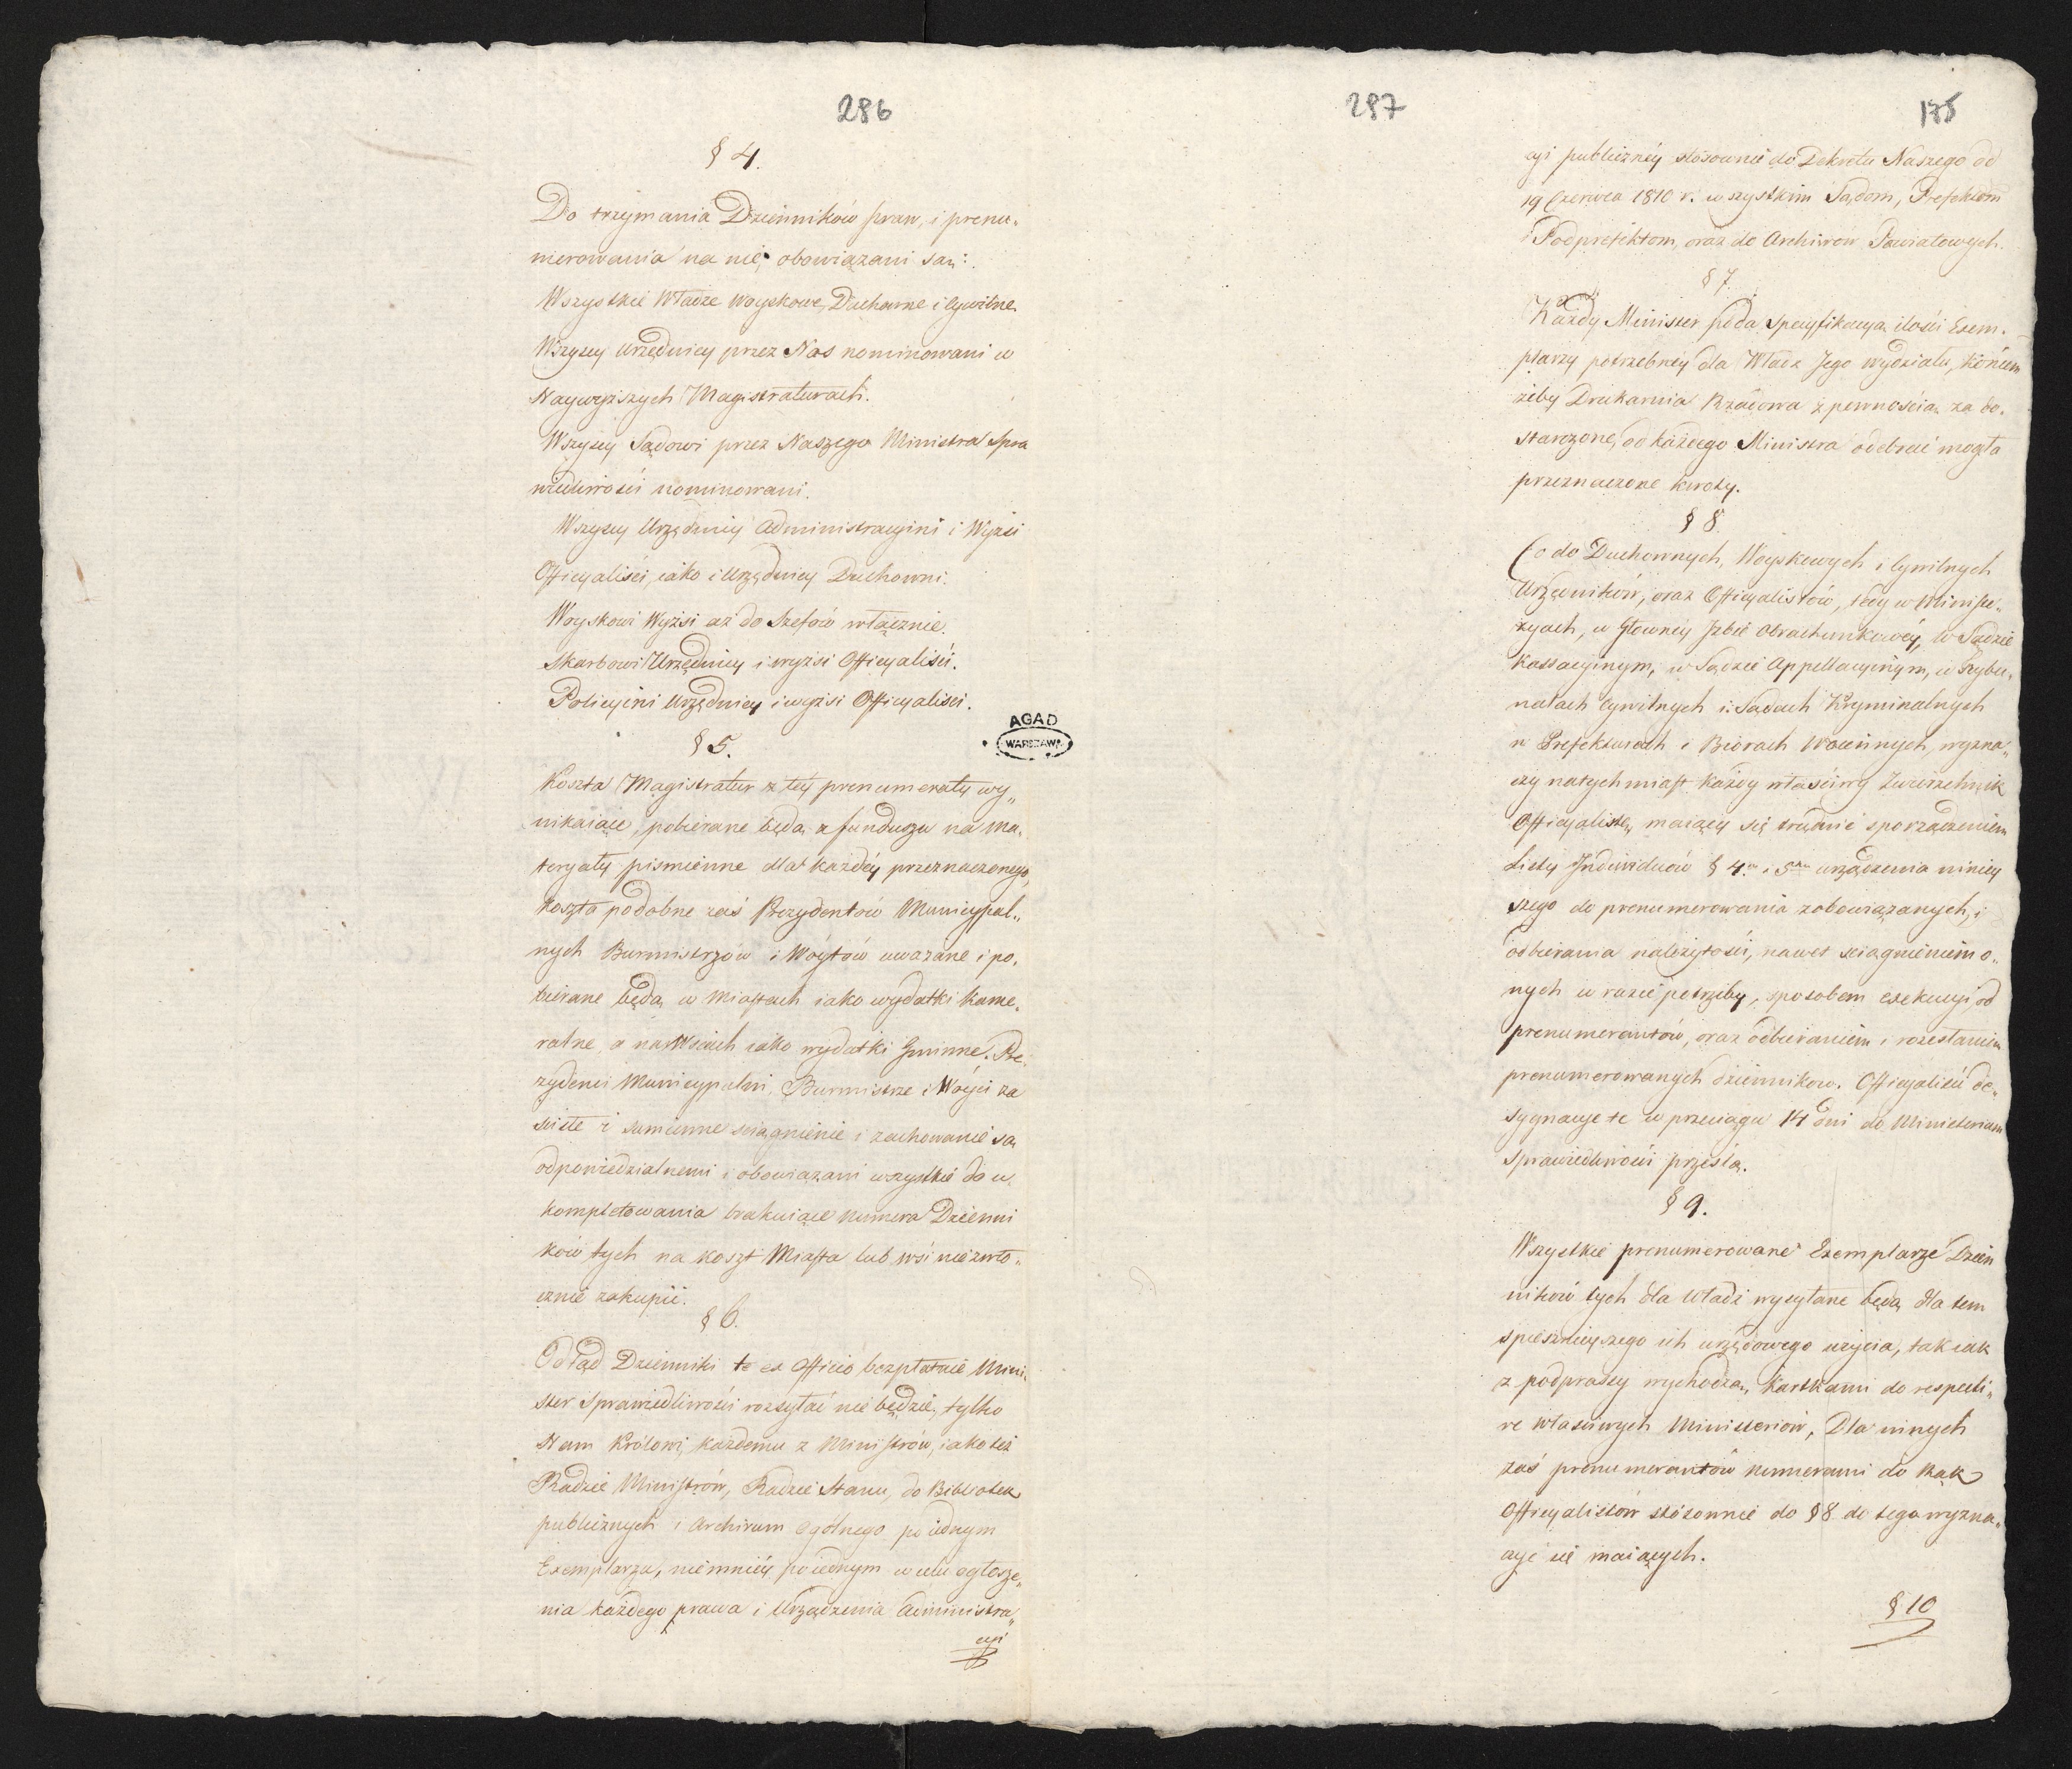 286
§ 4.
Do trzymania Dzienników praw, i prenu„
merowania na nie, obowiązani są:
Wszystkie Władze Woyskowe, Duchowne i Cywilne.
Wszyscy Urzędnicy przez Nas nominowani w
Naywyższych Magistraturach.
Wszyscy Sądowi przez Naszego Ministra Spra
wiedliwości nominowani.
Wszyscy Urzędnicy Administracyini i Wyżsi
Officyaliści, iako i Urzędnicy Duchowni.
Woyskowi Wyżsi aż do Szefów włącznie.
Skarbowi Urzędnicy i wyżsi Officyaliści.
Policyini Urzędnicy i wyżsi Officyaliści.
AGAD
WARSZAWA
§ 5.
Koszta Magistratur z tey prenumeraty wy„
nikaiące, pobierane będą z funduszu na ma„
teryały pismienne dla każdéy przeznaczonego,
koszta podobne zaś Prezydentów Municypal„
nych Burmistrzów i Wóytów uważane i po„
bierane będą w Miastach iako wydatki kame„
ralne, a na Wsiach iako wydatki Gminne. Pre
zydenci Municypalni, Burmistrze i Wóyci za
ścisłe i sumienne ściągnienie i zachowanie są
odpowiedzialnemi i obowiązani wszystkie do u„
kompletowania brakuiące numera Dzienni
ków tych na koszt Miasta lub wsi niezwło„
cznie zakupić.
§ 6.
Odtąd Dzienniki te ex Officio bezpłatnie Mini„
ster Sprawiedliwości rozsyłać nie będzie, tylko
Nam Królowi, każdemu z Ministrów, iako też
Radzie Ministrów, Radzie Stanu, do Bibliotek
publicznych i Archiwum Ogólnego po iednym
Exemplarzu, niemniéy po iednym w celu ogłosze„
nia każdego prawa i Urządzenia Administra„
cyi
287
175
cyi publicznéy stósownie do Dekretu Naszego od
19 Czerwca 1810 r. wszystkim Sądom, Prefektom
i Podprefektom, oraz do Archiwów Powiatowych.
§ 7.
Każdy Minister poda Specyfikacyą ilości Exem„
plarzy potrzebnéy dla Władz Jego wydziału, końcem
żeby Drukarnia Rządowa z pewnością za do„
starczone, od każdego Ministra odebrać mogła
przeznaczone kwoty.
§ 8.
Co do Duchownych, Woyskowych i Cywilnych
Urzędników, oraz Officyalistów, tedy w Ministe„
ryach, w Głowney Izbie Obrachunkowéy, w Sądzie
Kassacyinym, w Sądzie Appellacyinym, w Trybu„
nałach Cywilnych i Sądach Kryminalnych
w Prefekturach i Biórach Woiennych, wyzna„
czy natychmiast każdy właściwy Zwierzchnik
Officyalistę, maiący się trudnić sporządzeniem
Listy Indiwiduów § 4m i 5tm urządzenia niniey
szego do prenumerowania zobowiązanych, i
odbierania należytości, nawet ściągnieniem o„
nych w razie potrzeby, sposobem exekucyi, od
prenumerantów, oraz odbieraniem i rozesłaniem
prenumerowanych dzienników. Officyaliści de„
sygnacye te w przeciągu 14 dni do Ministerium
Sprawiedliwości prześlą.
§ 9.
Wszystkie prenumerowane Exemplarze Dzien
ników tych dla Władz wysyłane będą dla tem
spiesznieyszego ich urzędowego użycia, tak iak
z podprassy wychodzą, kartkami do respecti„
ve właściwych Ministeriów, Dla innych
zaś prenumerantów numerami do Rąk
Officyalistów stósownie do § 8 do tego wyzna„
czyć się maiących.
§ 10